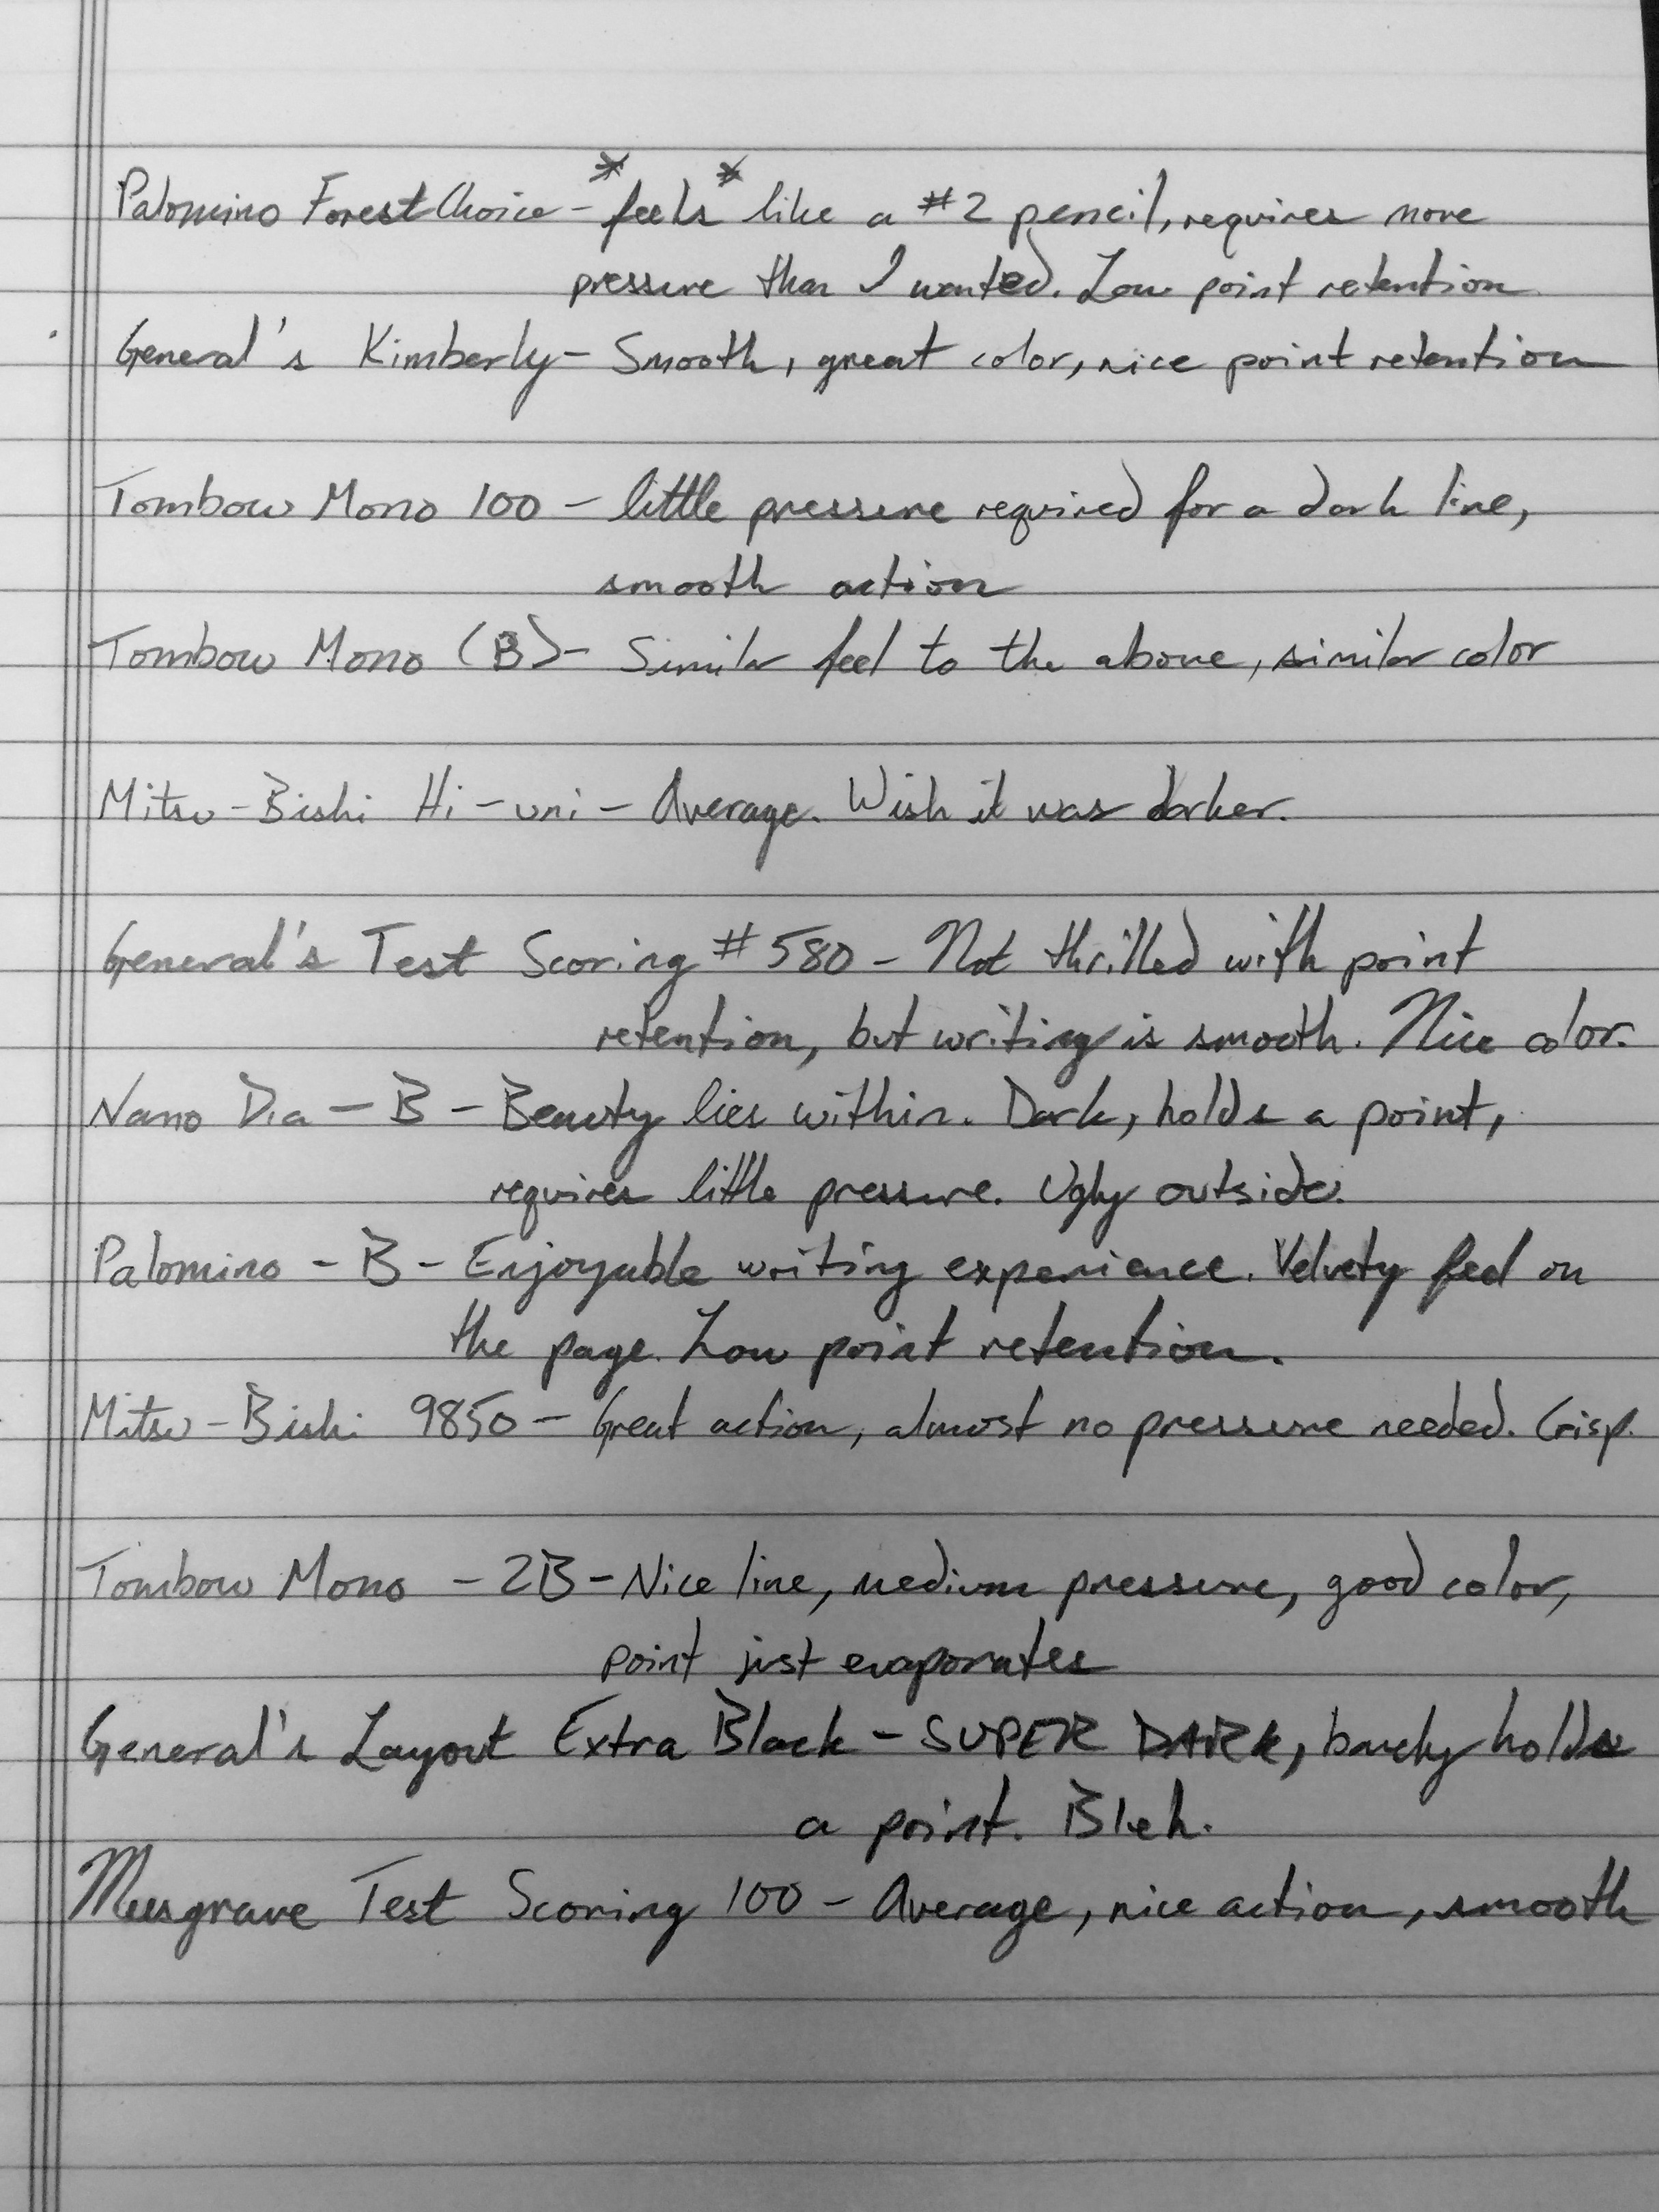 Palomino Forest Choice - *feels* like a #2 pencil, requires more
pressure than I wanted. Low point retention
General's Kimberly - Smooth, great color, nice point retention
Tombow Mono 100 - little pressure required for a dark line,
smooth action
Tombow Mono (B) - Similar feel to the above, similar color
Mitsu-Bishi Hi-uni - Average. Wish it was darker.
General's Test Scoring #580 - Not thrilled with point
retention, but writing is smooth. Nice color.
Nano Dia - B - Beauty lies within. Dark, holds a point,
requires little pressure. Ugly outside.
Palomino - B - Enjoyable writing experience. Velvety feel on
the page. Low point retention.
Mitsu-Bishi 9850 - Great action, almost no pressure needed. Crisp.
Tombow Mono - 2B - Nice line, medium pressure, good color,
point just evaporates
General's Layout Extra Black - SUPER DARK, barely holds
a point. Bleh.
Musgrave Test Scoring 100 - Average, nice action, smooth